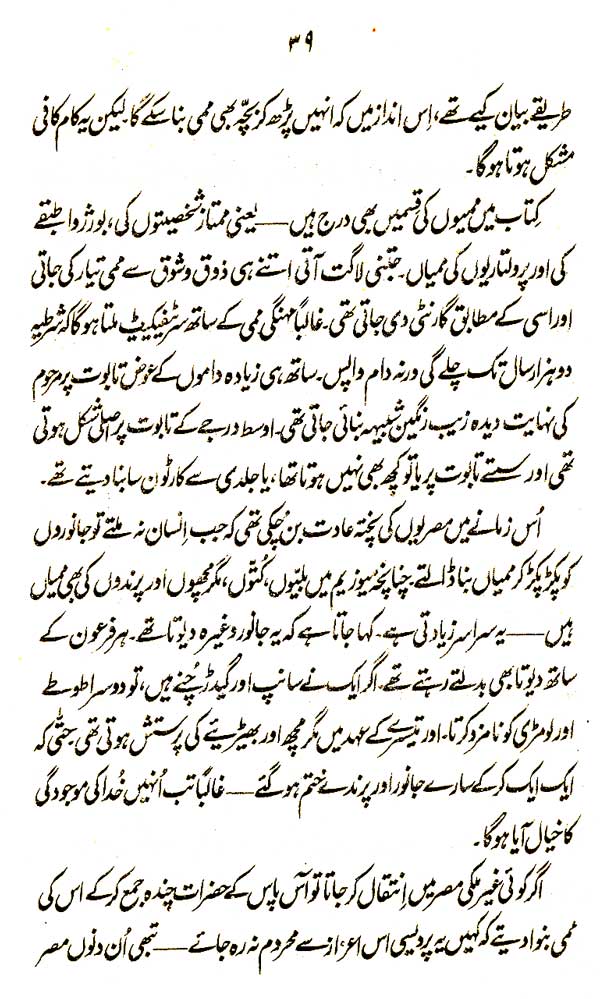 ۳۹
طریقے بیان کیے تھے، اِس انداز میں کہ انہیں پڑھ کر بچّہ بھی ممی بنا سکے گا۔ لیکن یہ کام کافی
مشکل ہوتا ہوگا۔
کتاب میں ممیوں کی قسمیں بھی درج ہیں — یعنی ممتاز شخصیتوں کی، بورژوا طبقے
کی اور پرولتاریوں کی ممیاں۔ جتنی لاگت آتی اتنے ہی ذوق و شوق سے ممی تیار کی جاتی
اور اسی کے مطابق گارنٹی دی جاتی تھی۔ غالباً مہنگی ممی کے ساتھ سرٹیفکیٹ ملتا ہوگا کہ شرطیہ
دو ہزار سال تک چلے گی ورنہ دام واپس۔ ساتھ ہی زیادہ داموں کے عوض تابوت پر مرحوم
کی نہایت دیدہ زیب رنگین شبیہہ بنائی جاتی تھی۔ اوسط درجے کے تابوت پر اصلی شکل ہوتی
تھی اور سستے تابوت پر یا تو کچھ بھی نہیں ہوتا تھا، یا جلدی سے کارٹون سا بنا دیتے تھے۔
اُس زمانے میں مصریوں کی پختہ عادت بن چکی تھی کہ جب اِنسان نہ ملتے تو جانوروں
کو پکڑ پکڑ کر ممیاں بنا ڈالتے۔ چنانچہ میوزیم میں بلیّوں، کتّوں، مگرمچھوں اور پرندوں کی بھی ممیاں
ہیں — یہ سراسر زیادتی ہے۔ کہا جاتا ہے کہ یہ جانور وغیرہ دیوتا تھے۔ ہر فرعون کے
ساتھ دیوتا بھی بدلتے رہتے تھے۔ اگر ایک نے سانپ اور گیدڑ چُنے ہیں، تو دوسرا طوطے
اور لومڑی کو نامزد کرتا۔ اور تیسرے کے عہد میں مگرمچھ اور بھیڑیئے کی پرستش ہوتی تھی۔ حتٰی کہ
ایک ایک کر کے سارے جانور اور پرندے ختم ہو گئے — غالباً تب اُنہیں خُدا کی موجودگی
کا خیال آیا ہوگا۔
اگر کوئی غیر ملکی مصر میں اِنتقال کر جاتا تو آس پاس کے حضرات چندہ جمع کر کے اس کی
ممی بنوا دیتے کہ کہیں یہ پردیسی اس اعزاز سے محروم نہ رہ جائے — تبھی اُن دنوں مصر